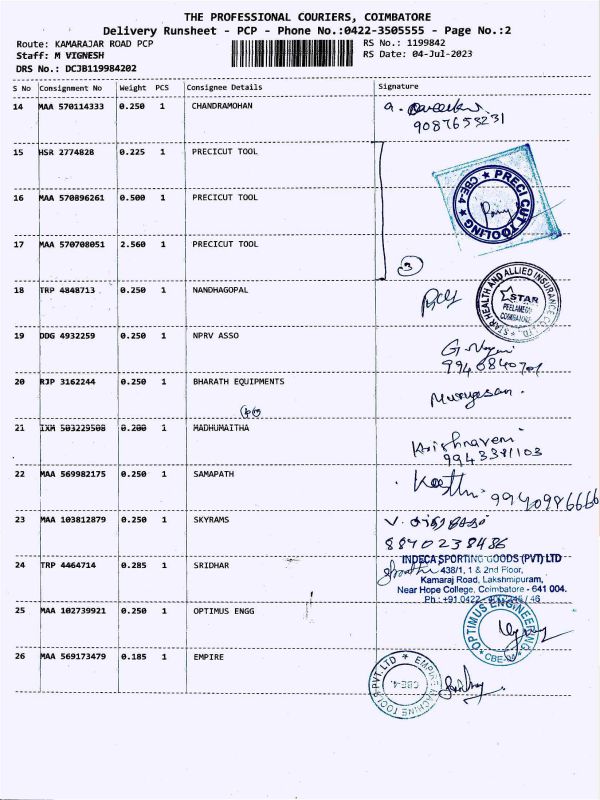 THE PROFESSIONAL COURIERS, COIMBATORE
Delivery Runsheet - PCP - Phone No.:0422-3505555 - Page No.:2
Route: KAMARAJAR ROAD PCP
RS No.: 1199842
Staff: M VIGNESH
RS Date: 04-Jul-2023
DRS No.: DCJB119984202
S No Consignment No Weight PCS Consignee Details Signature
14 MAA 570114333 0.250 1 CHANDRAMOHAN
9087653231
15 HSR 2774828 0.225 1 PRECICUT TOOL
PRECI CUT TOOLING CBE-4
16 MAA 570896261 0.500 1 PRECICUT TOOL
17 MAA 570708051 2.560 1 PRECICUT TOOL
3
18 TRP 4848713 0.250 1 NANDHAGOPAL
STAR HEALTH AND ALLIED INSURANCE CO. LTD.
STAR
PEELAMEDU
COIMBATORE
19 DDG 4932259 0.250 1 NPRV ASSO
20 RJP 3162244 0.250 1 BHARATH EQUIPMENTS
Murugasan.
21 IXM 503229508 0.200 1 MADHUMAITHA
Krishnaveni
22 MAA 569982175 0.250 1 SAMAPATH
23 MAA 103812879 0.250 1 SKYRAMS
8840238486
24 TRP 4464714 0.285 1 SRIDHAR
INDECA SPORTING GOODS (PVT) LTD
438/1, 1 & 2nd Floor,
Kamaraj Road, Lakshmipuram,
Near Hope College, Coimbatore - 641 004.
25 MAA 102739921 0.250 1 OPTIMUS ENGG
OPTIMUS ENGINEERING
26 MAA 569173479 0.185 1 EMPIRE
EMPIRE MACHINE TOOLS PVT. LTD
CBE-4.